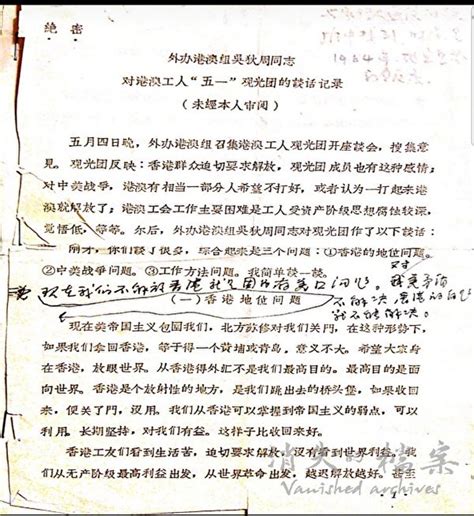 绝密
1964年
外办港澳组吴狄周同志
对港澳工人“五一”观光团的谈话记录
（未經本人审阅）
五月四日晚，外办港澳组召集港澳工人观光团开座谈会，搜集意
見。观光团反映：香港群众迫切要求解放，观光团成员也有这种感情；
对中美战爭，港澳有相当一部分人希望不打好，或者认为一打起来港
澳就解放了；港澳工会工作主要困难是工人受资产阶级思想腐蝕较深，
觉悟低，等等。尔后，外办港澳组吴狄周同志对观光团作了以下談话：
刚才，你们談了很多，综合起来是三个问题：①香港的地位问题。
②中美战爭问题。③工作方法问题。我简单談一談。
现在我们不解放香港
不解决
（一）香港地位问题
现在美帝国主义包围我们，北方苏修对我们关門，在这种形势下，
如果我们拿回香港，等于得一个黄埔或青岛，意义不大。希望大家身
在香港，放眼世界。从香港得外汇不是我们最高目的。最高目的是面
向世界。香港是个放射性的地方，是我们跳出去的桥头堡，如果收回
来，便关了門，没用。我们从香港可以掌握到帝国主义的弱点，可以
利用。长期堅持，对我们有益。这样子比收回来好。
香港工友们看到生活苦，迫切要求解放，没有看到世界利益。我
们从无产阶级最高利益出发，从世界革命出发，越迟解决越好。甚至
消失的檔案
Vanished archives